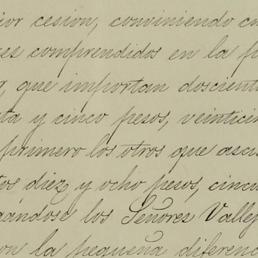 ior cesion, conviniendo en
es comprendidos en la p
que importan doscient
ta y cinco pesos, veintici
primero los otros que asci
tos diez y ocho pesos, cinc
ándose los Señores Vallej
on la pequeña diferenc